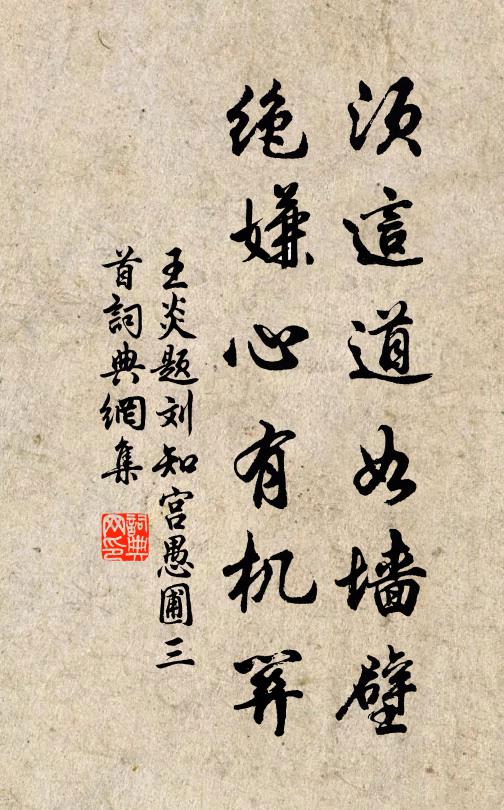 须這道如墙壁
绝嫌心有机弄
王炎题刘知宫愚圃三
首詞典網集
詞典
网印